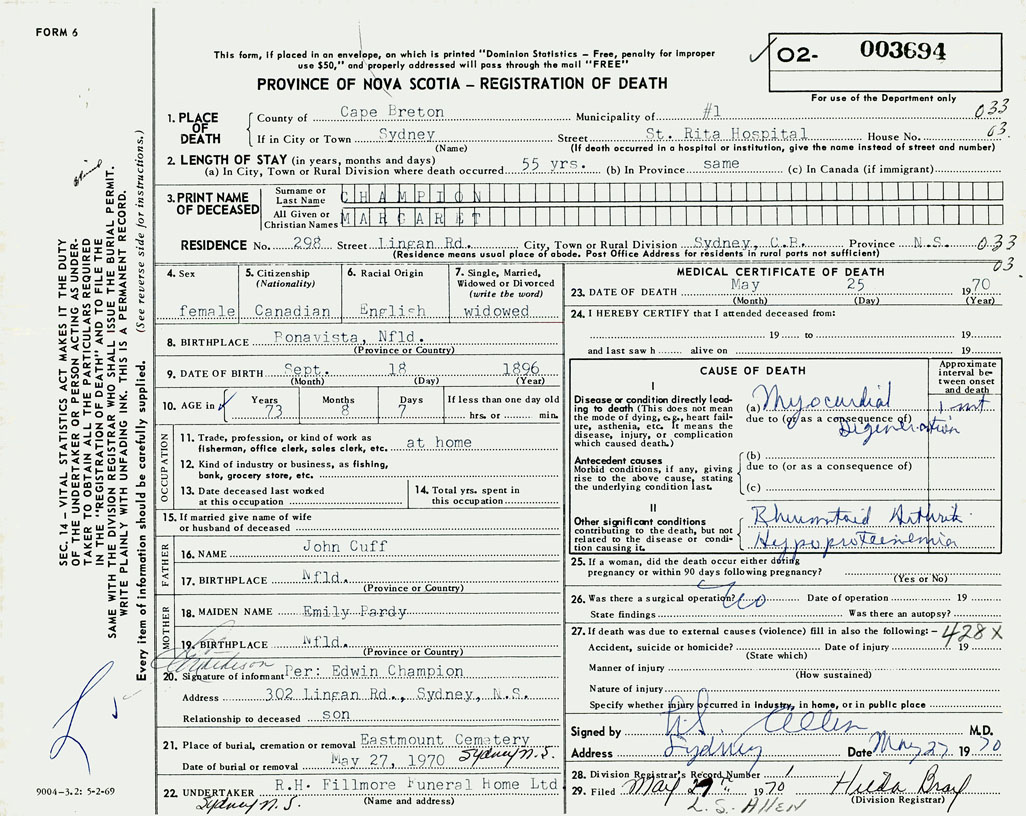 FORM 6
This form, if placed in an envelope, on which is printed "Dominion Statistics – Free, penalty for improper
use $50," and properly addressed will pass through the mail "FREE"
PROVINCE OF NOVA SCOTIA – REGISTRATION OF DEATH
02- 003694
For use of the Department only
033
63.
1. PLACE OF DEATH
County of Cape Breton Municipality of #1
If in City or Town Sydney Street St. Rita Hospital House No.
(Name) (If death occurred in a hospital or institution, give the name instead of street and number)
2. LENGTH OF STAY (in years, months and days)
(a) In City, Town or Rural Division where death occurred 55 yrs. (b) In Province same (c) In Canada (if immigrant)
3. PRINT NAME OF DECEASED
Surname or Last Name CHAMPION
All Given or Christian Names MARGARET
RESIDENCE No. 298 Street Lingan Rd. City, Town or Rural Division Sydney, C.B. Province N.S. 033
(Residence means usual place of abode. Post Office Address for residents in rural parts not sufficient)
03.
4. Sex female
5. Citizenship (Nationality) Canadian
6. Racial Origin English
7. Single, Married, Widowed or Divorced (write the word) widowed
8. BIRTHPLACE Bonavista, Nfld.
(Province or Country)
9. DATE OF BIRTH Sept. 18 1896
(Month) (Day) (Year)
10. AGE in Years 73 Months 8 Days 7 If less than one day old hrs. or min.
OCCUPATION
11. Trade, profession, or kind of work as
fisherman, office clerk, sales clerk, etc. at home
12. Kind of industry or business, as fishing,
bank, grocery store, etc.
13. Date deceased last worked
at this occupation
14. Total yrs. spent in
this occupation
15. If married give name of wife
or husband of deceased
FATHER
16. NAME John Cuff
17. BIRTHPLACE Nfld.
(Province or Country)
MOTHER
18. MAIDEN NAME Emily Pardy
19. BIRTHPLACE Nfld.
(Province or Country)
20. Signature of informant Per: Edwin Champion
Address 302 Lingan Rd., Sydney, N.S.
Relationship to deceased son
21. Place of burial, cremation or removal Eastmount Cemetery
Sydney N.S.
Date of burial or removal May 27, 1970
22. UNDERTAKER R.H. Fillmore Funeral Home Ltd
(Name and address)
Sydney N.S.
MEDICAL CERTIFICATE OF DEATH
23. DATE OF DEATH May 25 1970
(Month) (Day) (Year)
24. I HEREBY CERTIFY that I attended deceased from:
19 to 19
and last saw h alive on 19
CAUSE OF DEATH
Approximate interval between onset and death
I
Disease or condition directly leading to death (This does not mean the mode of dying, e.g., heart failure, asthenia, etc. It means the disease, injury, or complication which caused death.)
(a) Myocardial
due to (or as a consequence of)
Degeneration
Antecedent causes
Morbid conditions, if any, giving rise to the above cause, stating the underlying condition last.
(b)
due to (or as a consequence of)
(c)
II
Other significant conditions
contributing to the death, but not related to the disease or condition causing it.
Rheumatoid Arthritis
Hypoproteinemia
25. If a woman, did the death occur either during
pregnancy or within 90 days following pregnancy?
(Yes or No)
26. Was there a surgical operation? No Date of operation 19
State findings Was there an autopsy?
27. If death was due to external causes (violence) fill in also the following: – 428X
Accident, suicide or homicide? Date of injury 19
(State which)
Manner of injury
(How sustained)
Nature of injury
Specify whether injury occurred in industry, in home, or in public place
Signed by Allen M.D.
Address Sydney Date May 27 1970
28. Division Registrar's Record Number
29. Filed May 29th 1970 Hilda Bray
(Division Registrar)
L.S. ALLEN
SEC. 14 – VITAL STATISTICS ACT MAKES IT THE DUTY
OF THE UNDERTAKER OR PERSON ACTING AS UNDER-
TAKER TO OBTAIN ALL THE PARTICULARS REQUIRED
IN THE "REGISTRATION OF DEATH" AND TO FILE THE
SAME WITH THE DIVISION REGISTRAR WHO SHALL ISSUE THE BURIAL PERMIT.
WRITE PLAINLY WITH UNFADING INK. THIS IS A PERMANENT RECORD.
Every item of information should be carefully supplied. (See reverse side for instructions.)
9004-3.2: 5-2-69